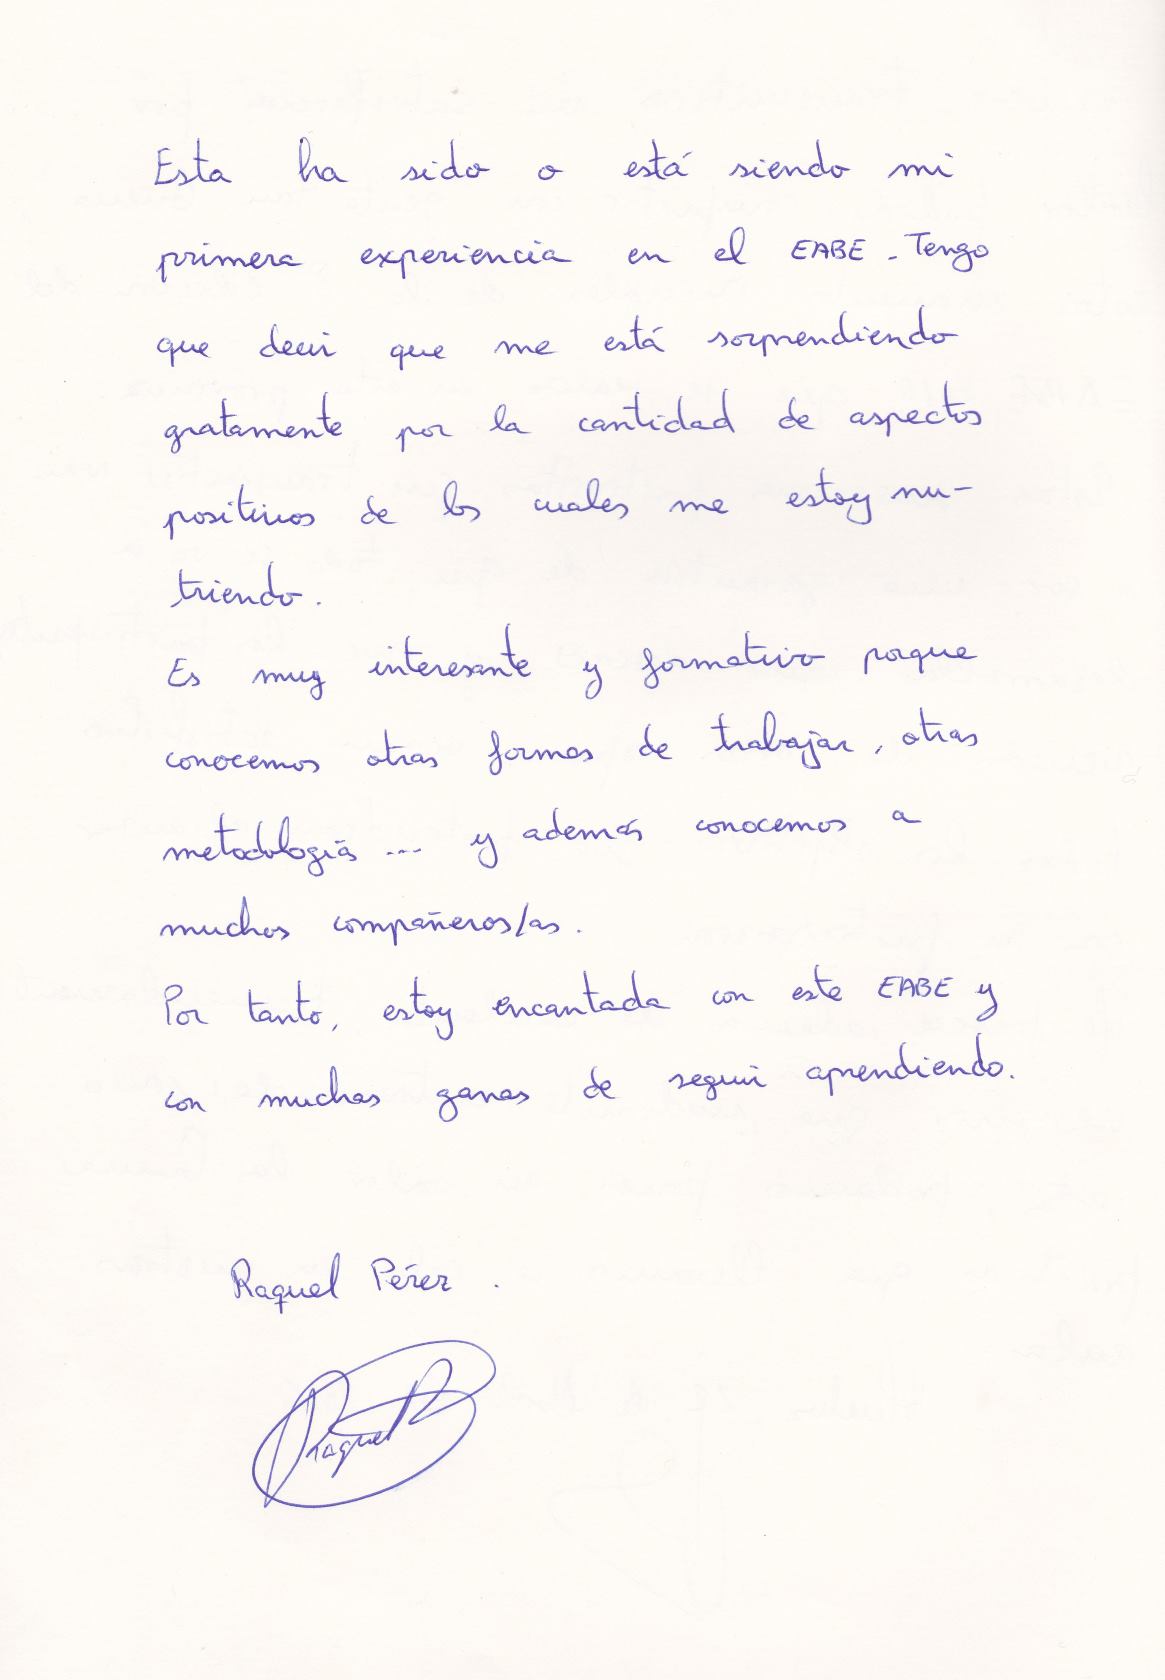 Esta ha sido o está siendo mi
primera experiencia en el EABE. Tengo
que decir que me está sorprendiendo
gratamente por la cantidad de aspectos
positivos de los cuales me estoy nu-
triendo.
Es muy interesante y formativo porque
conocemos otras formas de trabajar, otras
metodologías ... y además conocemos a
muchos compañeros/as.
Por tanto, estoy encantada con este EABE y
con muchas ganas de seguir aprendiendo.
Raquel Pérez.
Raquel